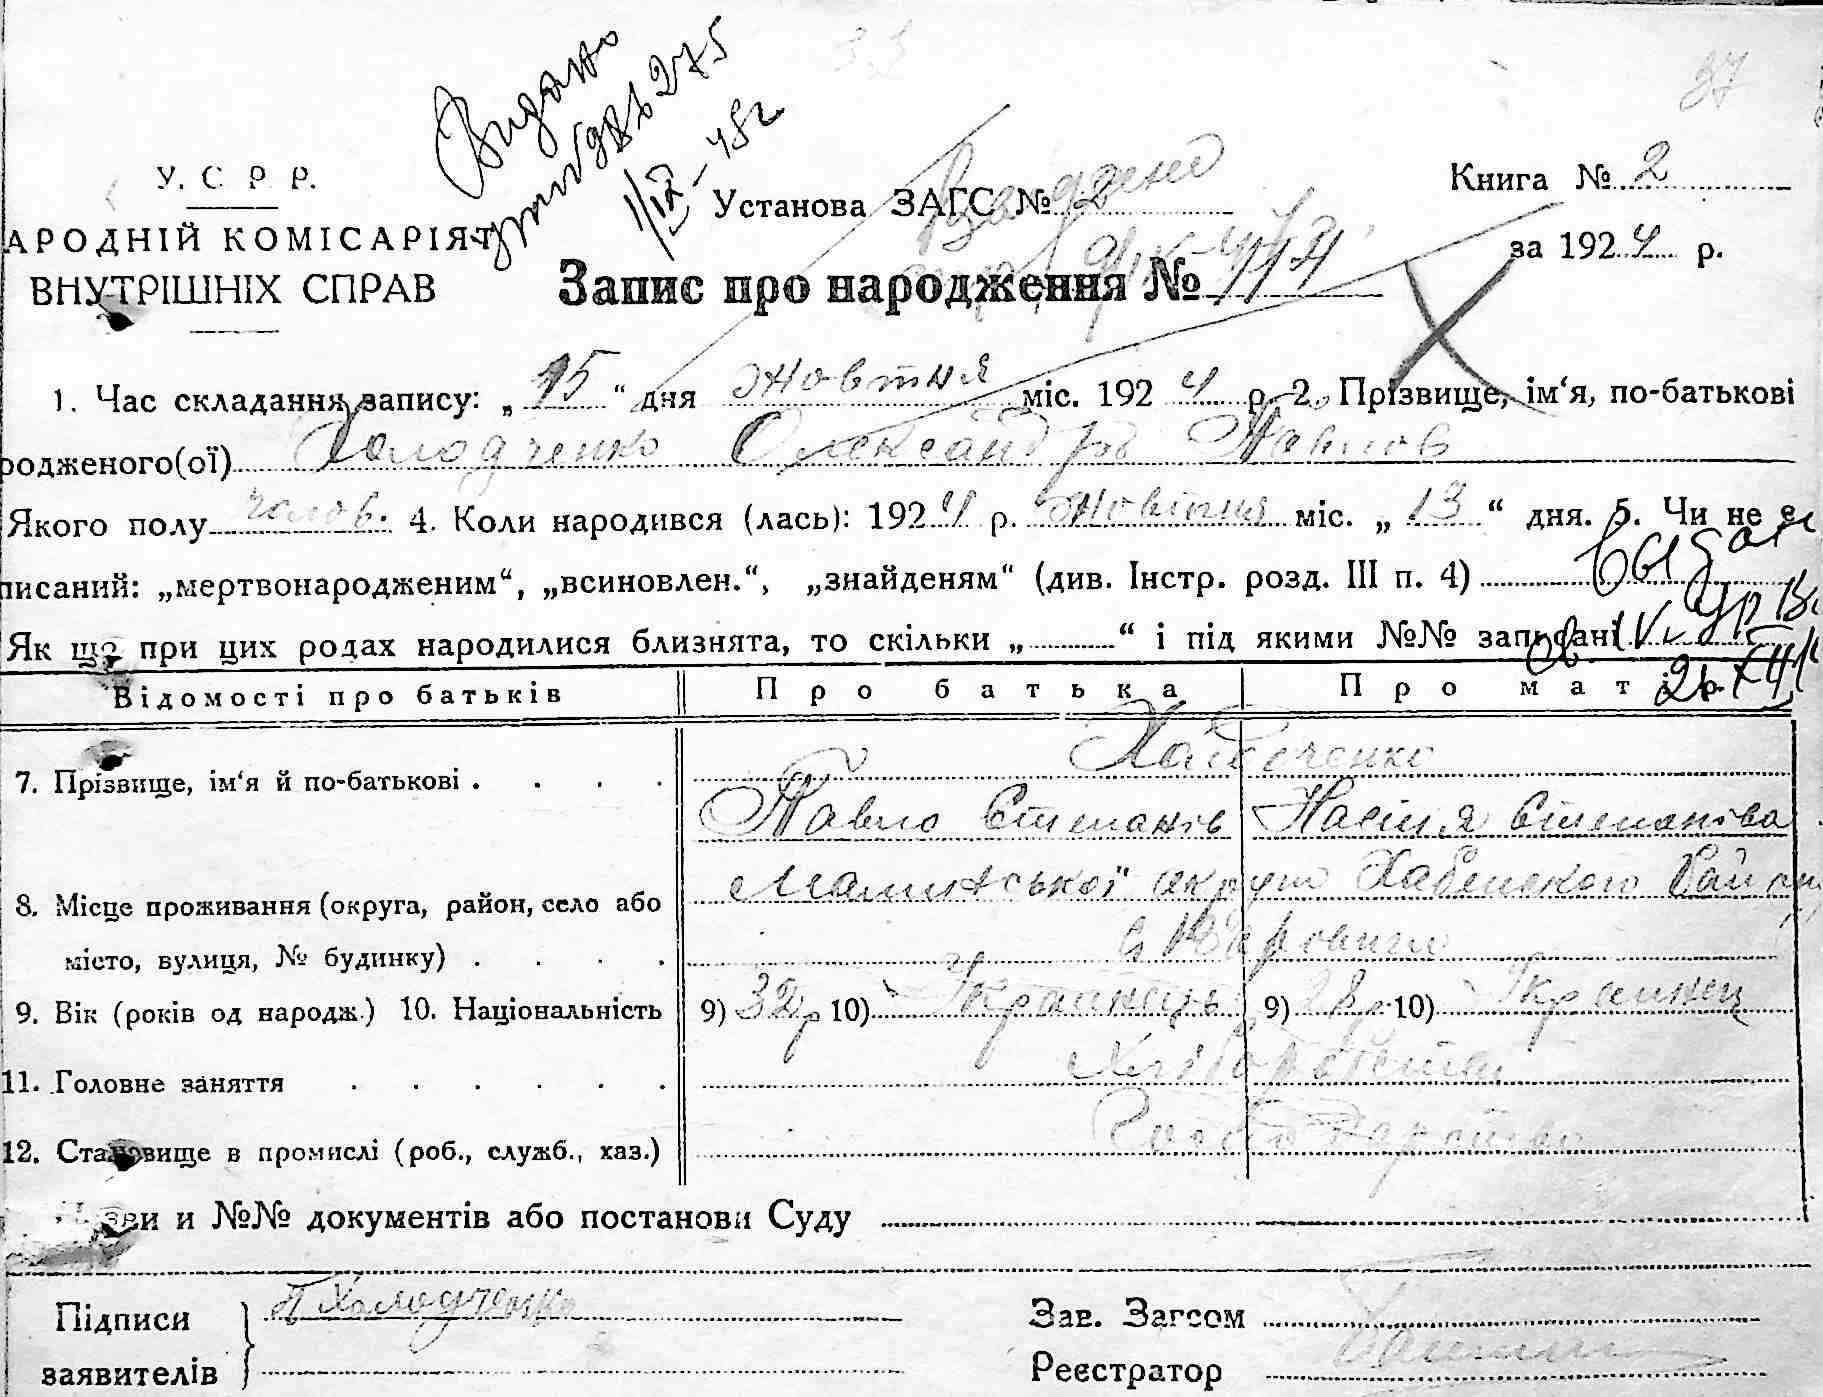 33
37
Видано
275
1/IX-48г
У. С. Р. Р.
АРОДНІЙ КОМІСАРІЯТ
ВНУТРІШНІХ СПРАВ
Установа ЗАГС № 2
Книга № 2
за 1924 р.
Запис про народження № 114
1. Час складання запису: „15“ дня жовтня міс. 1924 р. 2. Прізвище, ім‘я, по-батькові
родженого(ої) Холодченко Олександр Павлов
Якого полу чолов. 4. Коли народився (лась): 1924 р. жовтня міс. „13“ дня. 5. Чи не є
писаний: „мертвонародженим“, „всиновлен.“, „знайденям“ (див. Інстр. розд. III п. 4)
Як що при цих родах народилися близнята, то скільки „ “ і під якими №№ записані
Відомості про батьків Про батька Про матір
7. Прізвище, ім‘я й по-батькові . . . . Холодченко
Павло Степанів Настя Степанова
8. Місце проживання (округа, район, село або Малинської округи Хабенского Району
місто, вулиця, № будинку) . . . .
9. Вік (років од народж.) 10. Національність 9) 32 р 10) Українець 9) 28 р 10) Украинец
11. Головне заняття . . . . . . Хліборобство
12. Становище в промислі (роб., служб., хаз.)
зви и №№ документів або постанови Суду
Підписи П Холодченко
заявителів
Зав. Загсом
Реєстратор